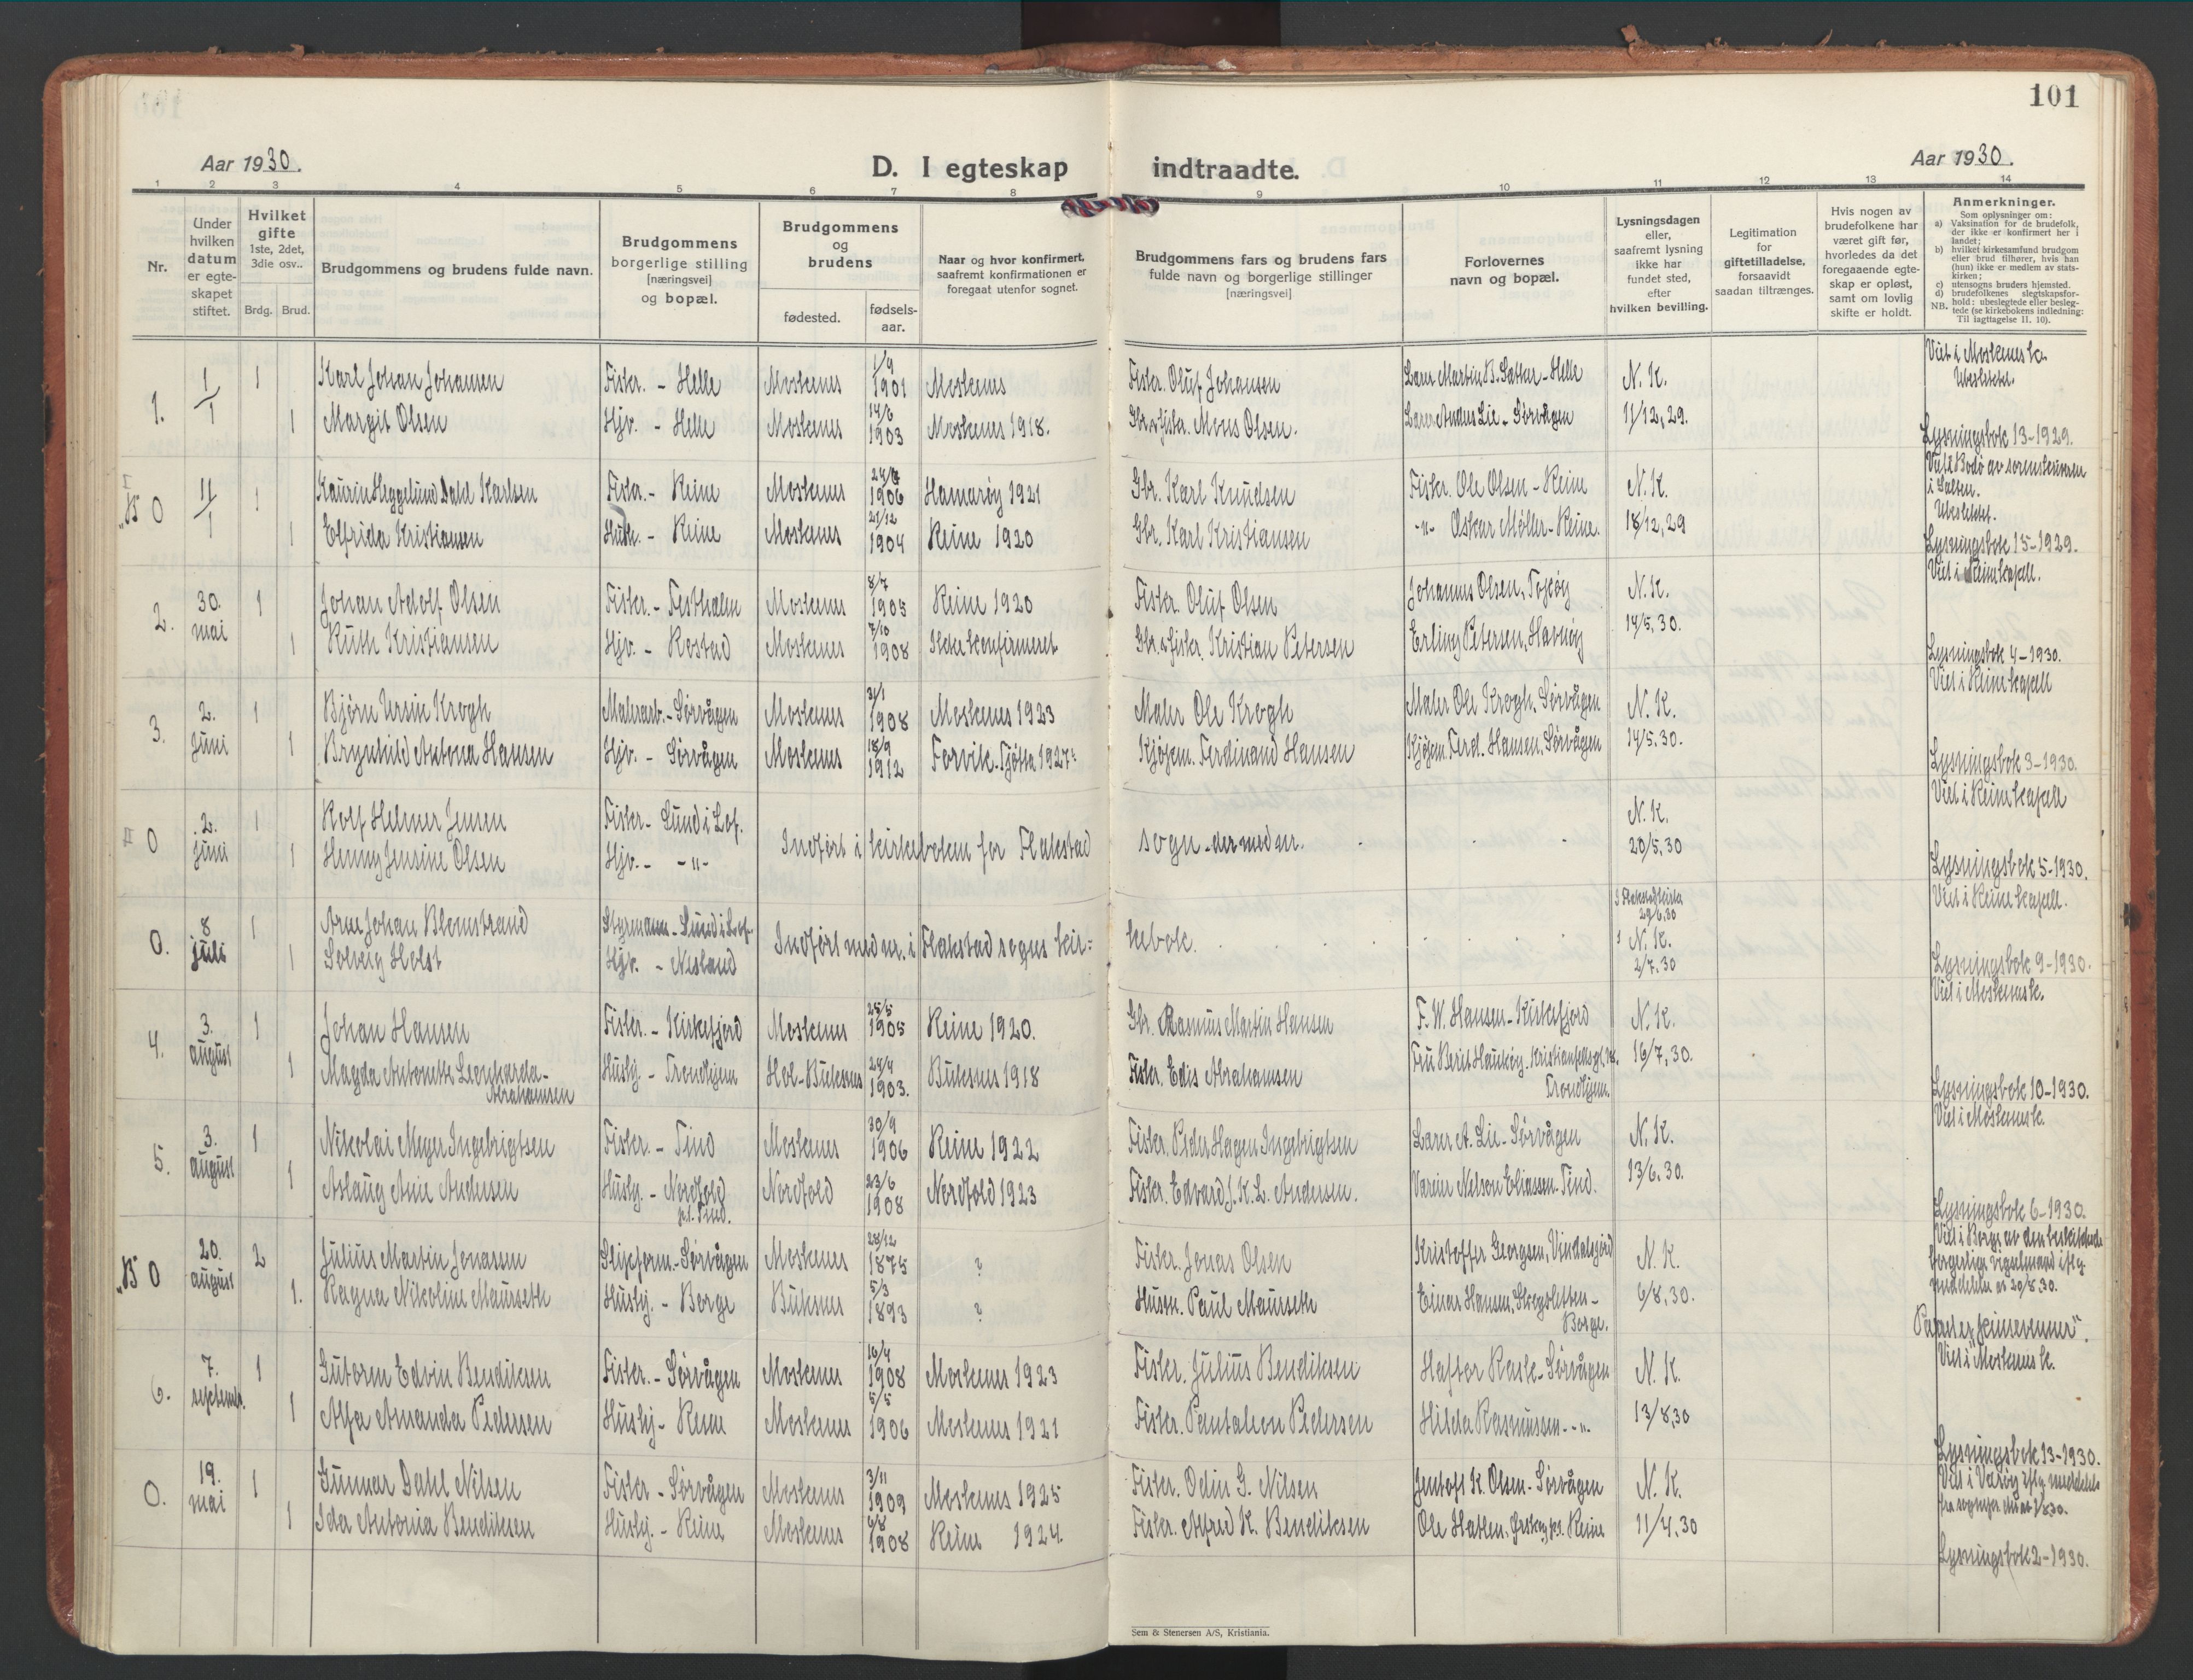 101
Aar 1930.
D. I egteskap indtraadte.
Aar 1930.
1 2 3 4 5 6 7 8 9 10 11 12 13 14
Nr.
Under hvilken datum er egte-skapet stiftet.
Hvilket gifte 1ste, 2det, 3die osv..
Brdg. Brud.
Brudgommens og brudens fulde navn.
Brudgommens borgerlige stilling [næringsvei] og bopæl.
Brudgommens og brudens
fødested. fødsels-aar.
Naar og hvor konfirmert, saafremt konfirmationen er foregaat utenfor sognet.
Brudgommens fars og brudens fars fulde navn og borgerlige stillinger [næringsvei]
Forlovernes navn og bopæl.
Lysningsdagen eller, saafremt lysning ikke har fundet sted, efter hvilken bevilling.
Legitimation for giftetilladelse, forsaavidt saadan tiltrænges.
Hvis nogen av brudefolkene har været gift før, hvorledes da det foregaaende egte-skap er opløst, samt om lovlig skifte er holdt.
Anmerkninger.
Som oplysninger om:
a) Vaksination for de brudefolk, der ikke er konfirmert her i landet;
b) hvilket kirkesamfund brudgom eller brud tilhører, hvis han (hun) ikke er medlem av stats-kirken;
c) utensogns bruders hjemsted.
d) brudefolkenes slegtskapsfor-hold: ubeslegtede eller besleg-tede (se kirkebokens indledning: Til iagttagelse II. 10).
NB.
1. 1/1 1 Karl Johan Johansen Fisker. - Helle Moskenes 1/9 1901 Moskenes Fisker. Oluf Johansen Lærer Martin B. Sattar - Helle N. K. Viet i Moskenes k.
Ubeslektet.
1 Margit Olsen Hjv. - Helle Moskenes 14/6 1903 Moskenes 1918. Gbr. & fisker. Mons Olsen. Lærer Anders Lie - Sørvågen 11/12, 29.
Lysningsbok 13-1929.
I
"B" 0 11/1 1 Kaurin Heggelund Dahl Karlsen Fisker. - Reine Moskenes 1906 Hamarøy 1921 Gbr. Karl Knudsen Fisker. Ole Olsen - Reine N. K. Viet i Bodø av sorenskriveren i Salten.
Ubeslektet.
1 Elfrida Kristiansen Hush. - Reine Moskenes 21/12 1904 Reine 1920 Gbr. Karl Kristiansen -"- Oskar Møller - Reine. 18/12, 29
Lysningsbok 15-1929.
2. 30. mai 1 Johan Adolf Olsen Fisker. - Festhælen Moskenes 8/7 1905 Reine 1920 Fisker. Oluf Olsen Johannes Olsen, Toppøy N. K. Viet i Reine kapell.
1 Ruth Kristiansen Hjv. - Rostad Moskenes 7/10 1908 Ikke konfirmeret Gbr. & fisker. Kristian Petersen Erling Petersen, Havnøy 14/5, 30.
Lysningsbok 4-1930.
3. 2. juni 1 Bjørn Ursin Krogh Malerarb. - Sørvågen Moskenes 31/1 1908 Moskenes 1923 Maler Ole Krogh Maler Ole Krogh, Sørvågen N. K. Viet i Reine kapell
1 Brynhild Antona Hansen Hjv. - Sørvågen Moskenes 18/9 1912 Forvik - Tjøtta 1927. Kjøpm. Ferdinand Hansen Kjøpm. Ferd. Hansen, Sørvågen 14/5. 30.
Lysningsbok 3-1930.
II
0 2. juni 1 Rolf Helmer Jensen Fisker - Sund i Lof. Indført i kirkeboken for Flakstad sogn - der med nr. N. K. Viet i Reine kapell
1 Henny Jensine Olsen Hjv. - -"- 20/5, 30
Lysningsbok 5-1930.
0. 8 juli 1 Arne Johan Blomstrand Styrmann - Sund i Lof. Indført med nr. i Flakstad sogns kir=kebok. I Flakstad kirke 29/6, 30 Viet i Reine kapell.
1 Solveig Holst Hjv. - Nesland I N. K. 2/7. 30
Lysningsbok 9-1930.
4. 3. august 1 Johan Hansen Fisker. - Kirkefjord Moskenes 25/5 1905 Reine 1920. Gbr. Rasmus Martin Hansen F. W. Hansen - Kirkefjord N. K. Viet i Moskenes k.
1 Magda Antonette Leonharda - Abrahamsen Hushj. - Trondhjem Hol - Buksnes 24/4 1903. Buksnes 1918 Fisker. Edis Abrahamsen Fru Berit Haukøy. Trondhjem. 16/7, 30.
Lysningsbok 10-1930.
5. 3. august 1 Nikolai Meyer Ingebrigtsen Fisker. - Tind Moskenes 30/9 1906 Reine 1922 Fisker. Peder Hagen Ingebrigtsen Lærer A. Lie - Sørvågen N. K. Viet i Moskenes k.
1 Aslaug Anie Andersen Hushj. - Nordfold p.t. Tind. Nordfold 23/6 1908 Nordfold 1923 Fisker. Edvard J. K. L. Andersen. Nelson Eliassen - Tind. 13/6. 30.
Lysningsbok 6-1930.
"B" 0 20. august 2 Julius Martin Jonassen Slipform. - Sørvågen Moskenes 28/12 1875 ? Fisker. Jonas Olsen Kristoffer Georgsen, Vindalsfjord N. K. Viet i Borge av den beskikkede borgerlige vigselmand iflg. meddelelse av 20/8. 30.
1. Ragna Nikoline Maurseth Hushj. - Borge Buksnes 5/3 1893 ? Husm. Paul Maurseth Einar Hansen, - Borge. 6/8, 30.
6. 7. september. 1 Gutorm Edvin Bendiksen Fisker. - Sørvågen Moskenes 16/4 1908 Moskenes 1923 Fisker. Julius Bendiksen Haftor Raste - Sørvågen N. K. Viet i Moskenes k.
1 Alfa Amanda Pedersen Hushj - Reine Moskenes 5/5 1906 Moskenes 1921 Fisker. Pantaleon Pedersen Hilda Rasmussen - -"- 13/8, 30
Lysningsbok 13-1930.
0. 19. mai 1 Gunnar Dahl Nilsen Fisker - Sørvågen Moskenes 3/11 1909 Moskenes 1925 Fisker. Odin G. Nilsen Jentoft K. Olsen - Sørvågen N. K. Viet i Værøy iflg. meddelelse
1 Ida Antonia Bendiksen Hushj. - Reine Moskenes 1908 Reine 1924. Fisker. Alfred K. Bendiksen Ole Hatlen, Reine 11/4. 30
Lysningsbok 2-1930.
Sem & Stenersen A/S, Kristiania.